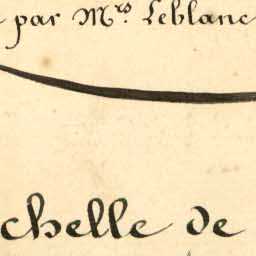 par Mrs Leblanc
chelle de